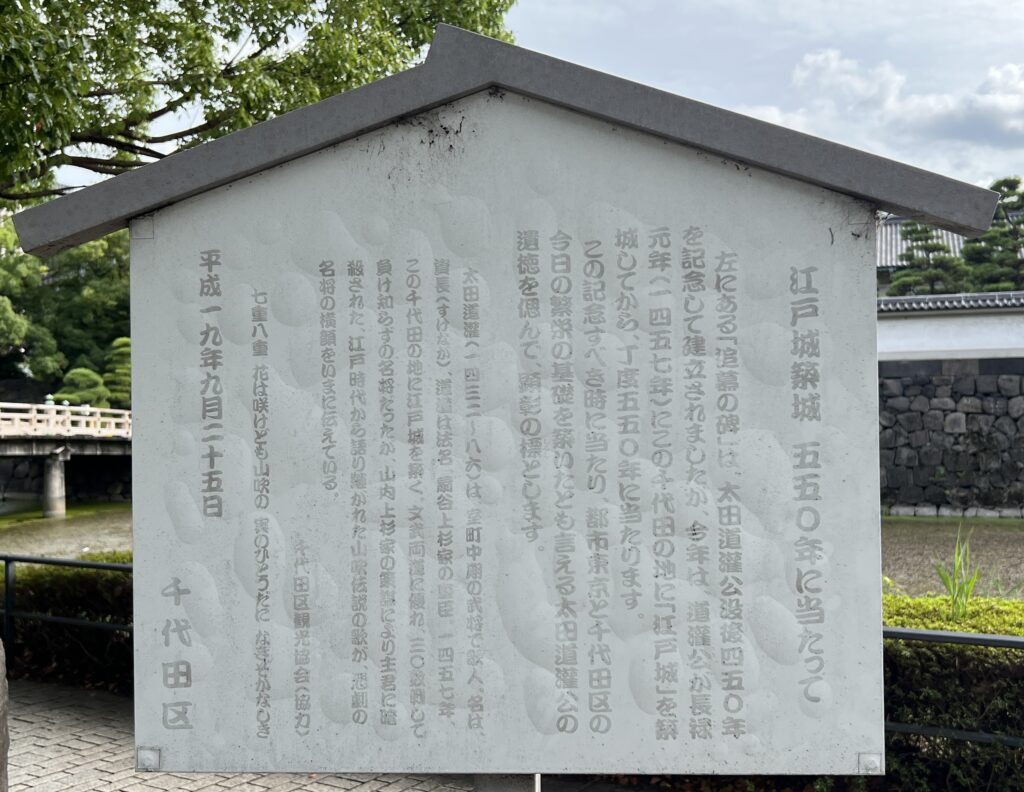 江戸城築城　五五〇年に当たって
左にある「追慕の碑」は、太田道灌公没後四五〇年
を記念して建立されましたが、今年は、道灌公が長禄
元年(一四五七年)にこの千代田の地に「江戸城」を築
城してから、丁度五五〇年に当たります。
この記念すべき時に当たり、都市東京と千代田区の
今日の繁栄の基礎を築いたとも言える太田道灌公の
遺徳を偲んで、顕彰の標とします。
太田道灌(一四三二〜八六)は、室町中期の武将で歌人。名は、
資長(すけなが)、道灌は法名。扇谷上杉家の重臣。一四五七年
この千代田の地に江戸城を築く。文武両道に優れ、三〇数戦して
負け知らずの名将だったが、山内上杉家の策謀により主君に暗
殺された。江戸時代から語り継がれた山吹伝説の歌が、悲劇の
名将の横顔をいまに伝えている。
千代田区観光協会(協力)
七重八重　花は咲けども山吹の　実のひとつだに　なきぞかなしき
平成一九年九月二十五日
千代田区